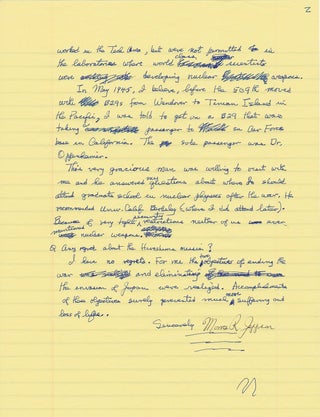 2
worked in the Tech Area, but were not permitted in
the laboratories where world class scientists
were developing nuclear weapons.
In May 1945, I believe, before the 509th moved
with B29s from Wendover to Tinian Island in
the Pacific, I was told to get on a B29 that was
taking passenger to an Air Force
base in California. The sole passenger was Dr.
Oppenheimer.
This very gracious man was willing to visit with
me and he answered my questions about where I should
attend graduate school in nuclear physics after the war. He
recommended Univ. Calif. Berkeley (where I did attend later).
Because of very tight security restrictions neither of us ever
mentioned nuclear weapons.
Q Any regret about the Hiroshima mission?
I have no regrets. For me the two objectives of ending the
war and eliminating
the invasion of Japan were realized. Accomplishments
of those objectives surely prevented much more suffering and
loss of life.
Sincerely Morris R. Jeppson